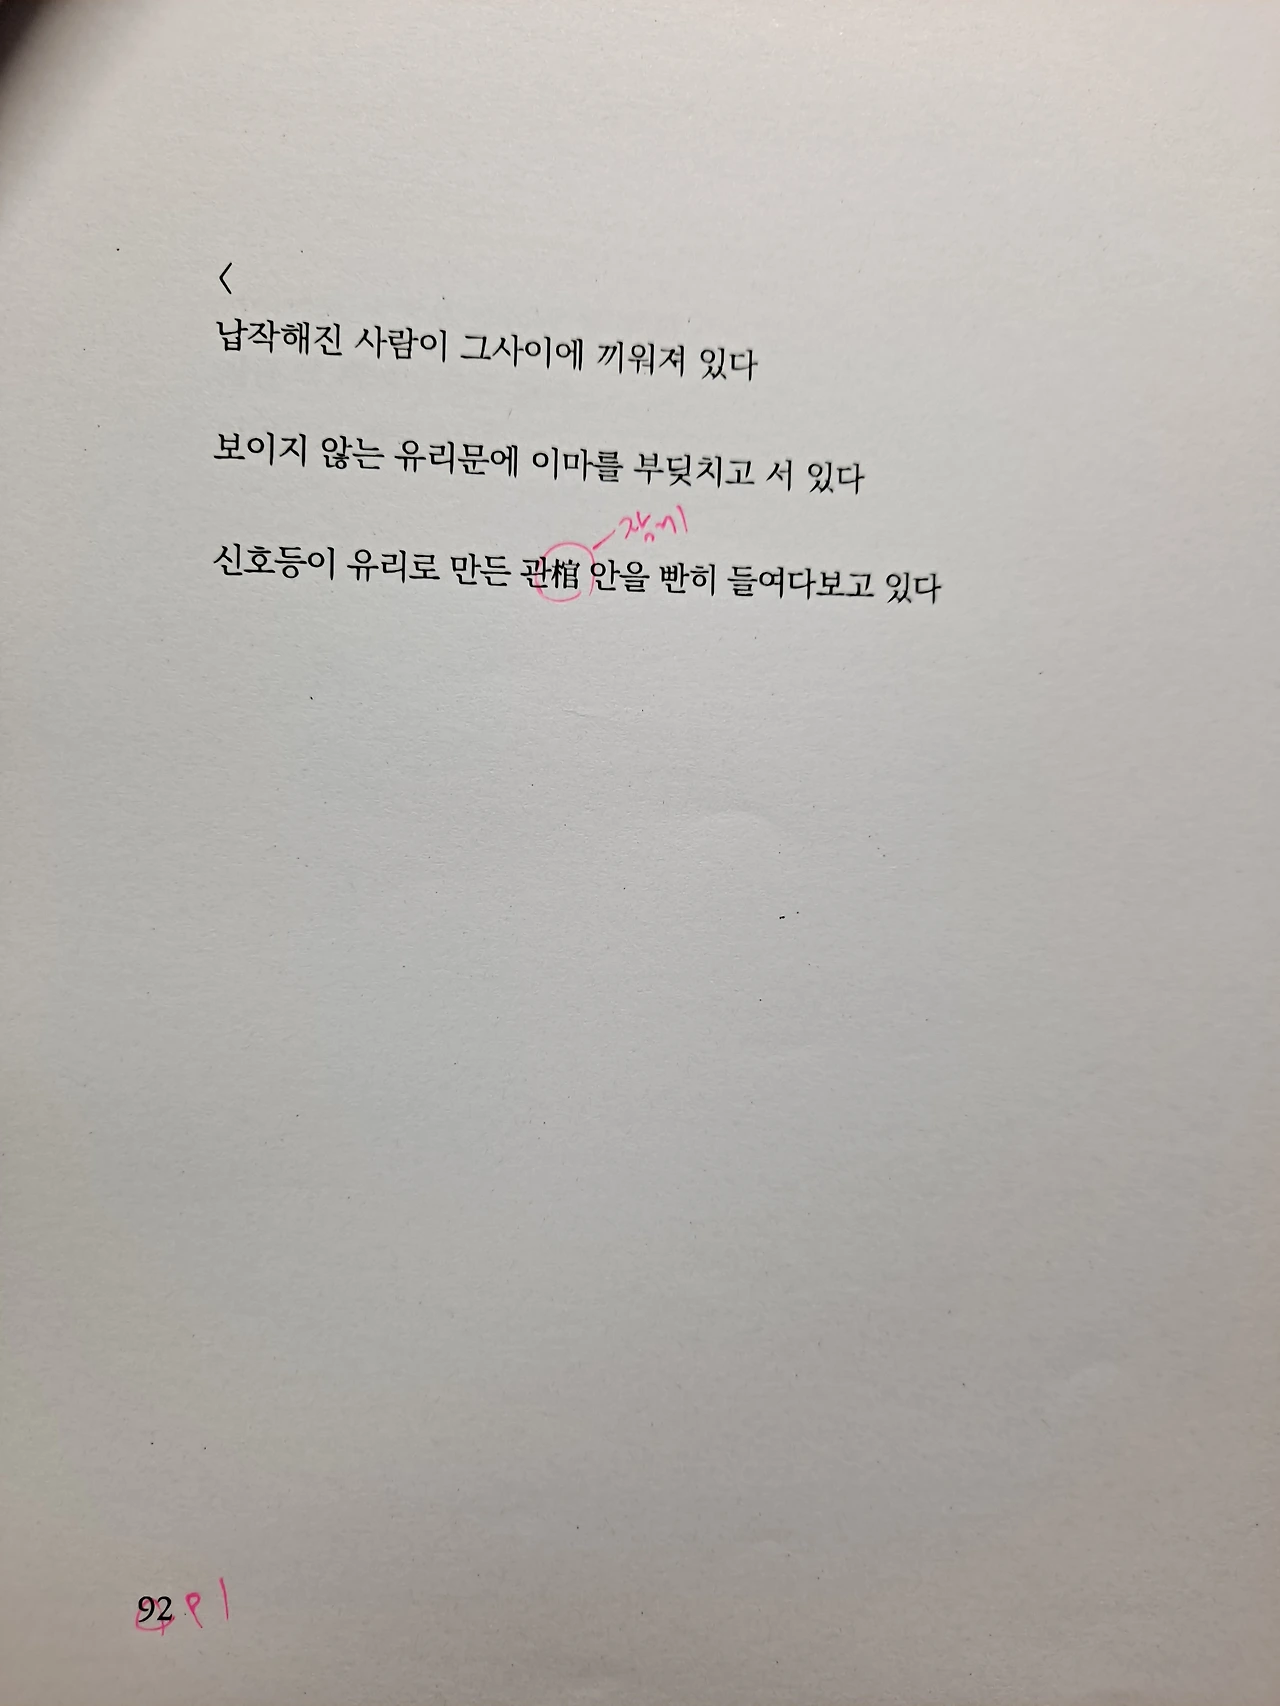 <
납작해진 사람이 그사이에 끼워져 있다
보이지 않는 유리문에 이마를 부딪치고 서 있다
작게
신호등이 유리로 만든 관棺 안을 빤히 들여다보고 있다
92 91